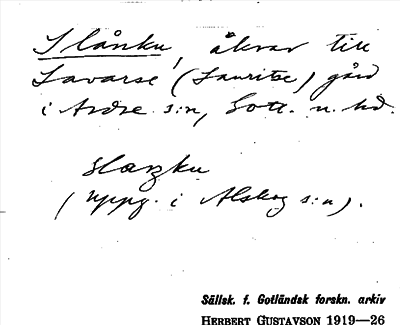 Slånku, åkrar till
Lavarse (Lauritse) gård
i Ardre s:n, Gotl. n. hd.
slaŋku
(uppg. i Alskog s:n).
Sällsk. f. Gotländsk forskn. arkiv
HERBERT GUSTAVSON 1919—26